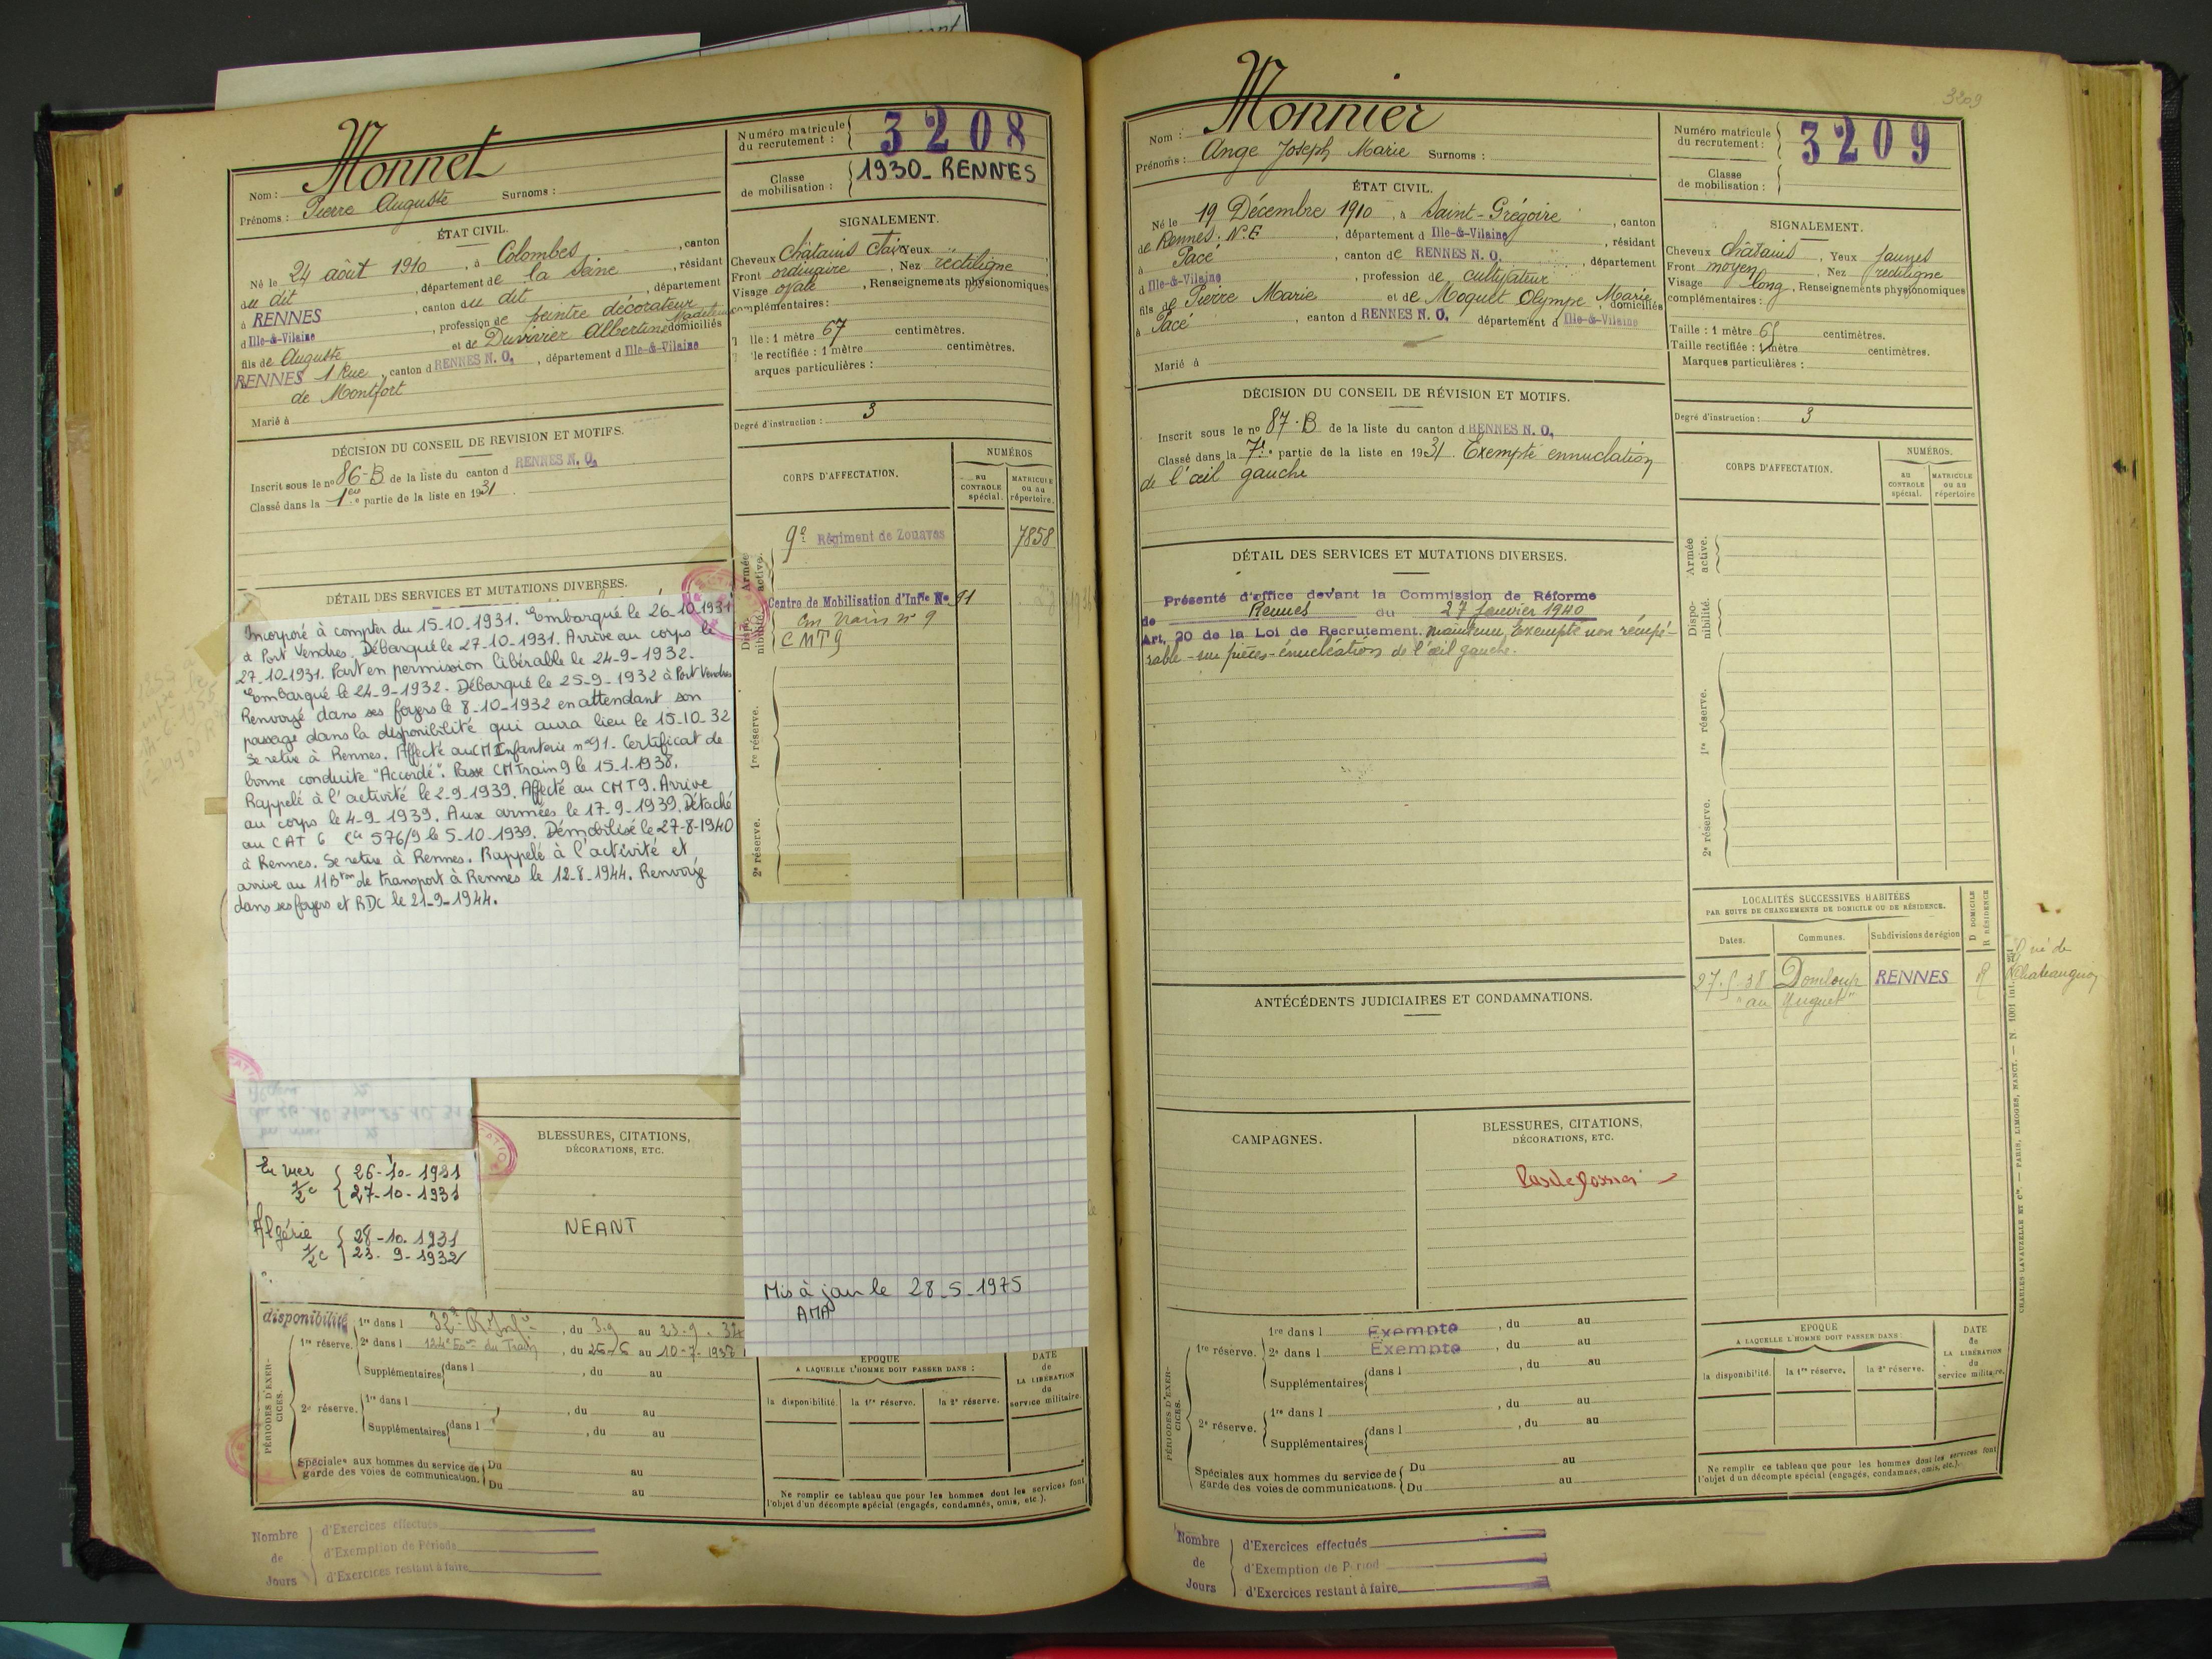 Monnet
Nom :
Prénoms : Pierre Auguste Surnoms :
ÉTAT CIVIL.
Né le 24 août 1910, à Colombes, canton
du dit, département de la Seine, résidant
à RENNES, canton du dit, département
d Ille-&-Vilaine, profession de peintre décorateur
fils de Auguste et de Duvivier Albertine Madeleine domiciliés
RENNES 1 Rue, canton d RENNES N. O., département d Ille-&-Vilaine
de Montfort
Marié à
DÉCISION DU CONSEIL DE REVISION ET MOTIFS.
Inscrit sous le no 86-B de la liste du canton d RENNES N. O.
Classé dans la 1ère partie de la liste en 1931.
DÉTAIL DES SERVICES ET MUTATIONS DIVERSES.
Incorporé à compter du 15-10-1931. Embarqué le 26-10-1931
à Port Vendres. Débarqué le 27-10-1931. Arrive au corps le
27-10-1931. Part en permission libérable le 24-9-1932.
Embarqué le 24-9-1932. Débarqué le 25-9-1932 à Port Vendres
Renvoyé dans ses foyers le 8-10-1932 en attendant son
passage dans la disponibilité qui aura lieu le 15-10-32
Se retire à Rennes. Affecté au CM Infanterie n°91. Certificat de
bonne conduite "Accordé". Passe CMTrain 9 le 15-1-1938.
Rappelé à l'activité le 2-9-1939. Affecté au CMT9. Arrive
au corps le 4-9-1939. Aux armées le 17-9-1939. Détaché
au CAT 6 Cie 576/9 le 5-10-1939. Démobilisé le 27-8-1940
à Rennes. Se retire à Rennes. Rappelé à l'activité et
arrive au 11 Bton de transport à Rennes le 12-8-1944. Renvoyé
dans ses foyers et RDC le 21-9-1944.
En mer { 26-10-1931
1/2 c { 27-10-1931
Algérie { 28-10-1931
1/2 c { 23-9-1932
BLESSURES, CITATIONS,
DÉCORATIONS, ETC.
NEANT
PÉRIODES D'EXERCICES.
disponibilité 1re dans l 32e R. Infie, du 3-9 au 23-9-34
1re réserve. 2e dans l 124e Eon du Train, du 26-6 au 10-7-1938
Supplémentaires dans l , du au
2e réserve. 1re dans l , du au
Supplémentaires dans l , du au
Spéciales aux hommes du service de Du au
garde des voies de communication. Du au
Nombre d'Exercices effectués
de d'Exemption de Période
Jours d'Exercices restant à faire
Numéro matricule
du recrutement : 3208
Classe
de mobilisation : 1930_RENNES
SIGNALEMENT.
Cheveux Châtains Clair Yeux
Front ordinaire, Nez rectiligne
Visage ovale, Renseignements physionomiques
complémentaires :
lle : 1 mètre 67 centimètres.
le rectifiée : 1 mètre centimètres.
arques particulières :
Degré d'instruction : 3
CORPS D'AFFECTATION.
NUMÉROS
au CONTROLE spécial.
MATRICULE ou au répertoire.
Armée active.
9e Régiment de Zouaves 7858
Disponibilité.
Centre de Mobilisation d'Infie No 91
Cm Train n° 9
CMT9
1re réserve.
2e réserve.
Mis à jour le 28_5_1975
AMA
ÉPOQUE
A LAQUELLE L'HOMME DOIT PASSER DANS :
la disponibilité. la 1re réserve. la 2e réserve.
DATE
de
LA LIBÉRATION
du
service militaire.
Ne remplir ce tableau que pour les hommes dont les services font
l'objet d'un décompte spécial (engagés, condamnés, omis, etc.).
3209
Monnier
Nom :
Prénoms : Ange Joseph Marie Surnoms :
ÉTAT CIVIL.
Né le 19 Décembre 1910, à Saint-Grégoire, canton
de Rennes. N.E, département d Ille-&-Vilaine, résidant
à Pacé, canton de RENNES N. O., département
d Ille-&-Vilaine, profession de cultivateur
fils de Pierre Marie et de Moquet Olympe Marie, domiciliés
à Pacé, canton d RENNES N. O. département d Ille-&-Vilaine
Marié à
DÉCISION DU CONSEIL DE RÉVISION ET MOTIFS.
Inscrit sous le no 87-B de la liste du canton d RENNES N. O.
Classé dans la 7e partie de la liste en 1931. Exempté ennuclation
de l'œil gauche
DÉTAIL DES SERVICES ET MUTATIONS DIVERSES.
Présenté d'office devant la Commission de Réforme
de Rennes du 27 Janvier 1940
Art. 20 de la Loi de Recrutement. maintenu Exempté non récupé-
rable - sur pièces - énucléation de l'œil gauche.
ANTÉCÉDENTS JUDICIAIRES ET CONDAMNATIONS.
CAMPAGNES.
BLESSURES, CITATIONS,
DÉCORATIONS, ETC.
Pas de dossier
PÉRIODES D'EXERCICES.
1re réserve. 1re dans l Exempté, du au
2e dans l Exempté, du au
Supplémentaires dans l , du au
2e réserve. 1re dans l , du au
Supplémentaires dans l , du au
Spéciales aux hommes du service de Du au
garde des voies de communications. Du au
Nombre d'Exercices effectués
de d'Exemption de Period
Jours d'Exercices restant à faire
Numéro matricule
du recrutement : 3209
Classe
de mobilisation :
SIGNALEMENT.
Cheveux châtains, Yeux jaunes
Front moyen, Nez rectiligne
Visage long, Renseignements physionomiques
complémentaires :
Taille : 1 mètre 65 centimètres.
Taille rectifiée : 1 mètre centimètres.
Marques particulières :
Degré d'instruction : 3
CORPS D'AFFECTATION.
NUMÉROS.
au CONTROLE spécial.
MATRICULE ou au répertoire
Armée active.
Disponibilité.
1re réserve.
2e réserve.
LOCALITÉS SUCCESSIVES HABITÉES
PAR SUITE DE CHANGEMENTS DE DOMICILE OU DE RÉSIDENCE.
Dates. Communes. Subdivisions de région D DOMICILE R RÉSIDENCE
27-5-38 Domloup RENNES R
"au Huguet"
EPOQUE
A LAQUELLE L'HOMME DOIT PASSER DANS :
la disponibilité. la 1re réserve. la 2e réserve.
DATE
de
LA LIBÉRATION
du
service militaire.
Ne remplir ce tableau que pour les hommes dont les services font
l'objet d'un décompte spécial (engagés, condamnés, omis, etc.).
CHARLES-LAVAUZELLE ET Cie. — PARIS, LIMOGES, NANCY. — N 1001 int.